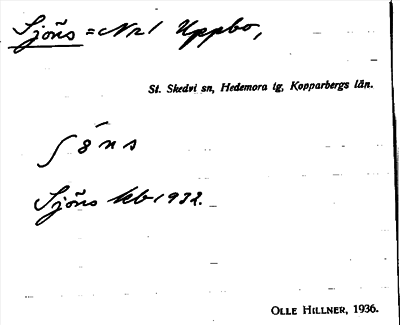 Sjöns = Nr 1 Uppbo,
St. Skedvi sn, Hedemora tg, Kopparbergs län.
Sjöns kb 1932.
OLLE HILLNER, 1936.